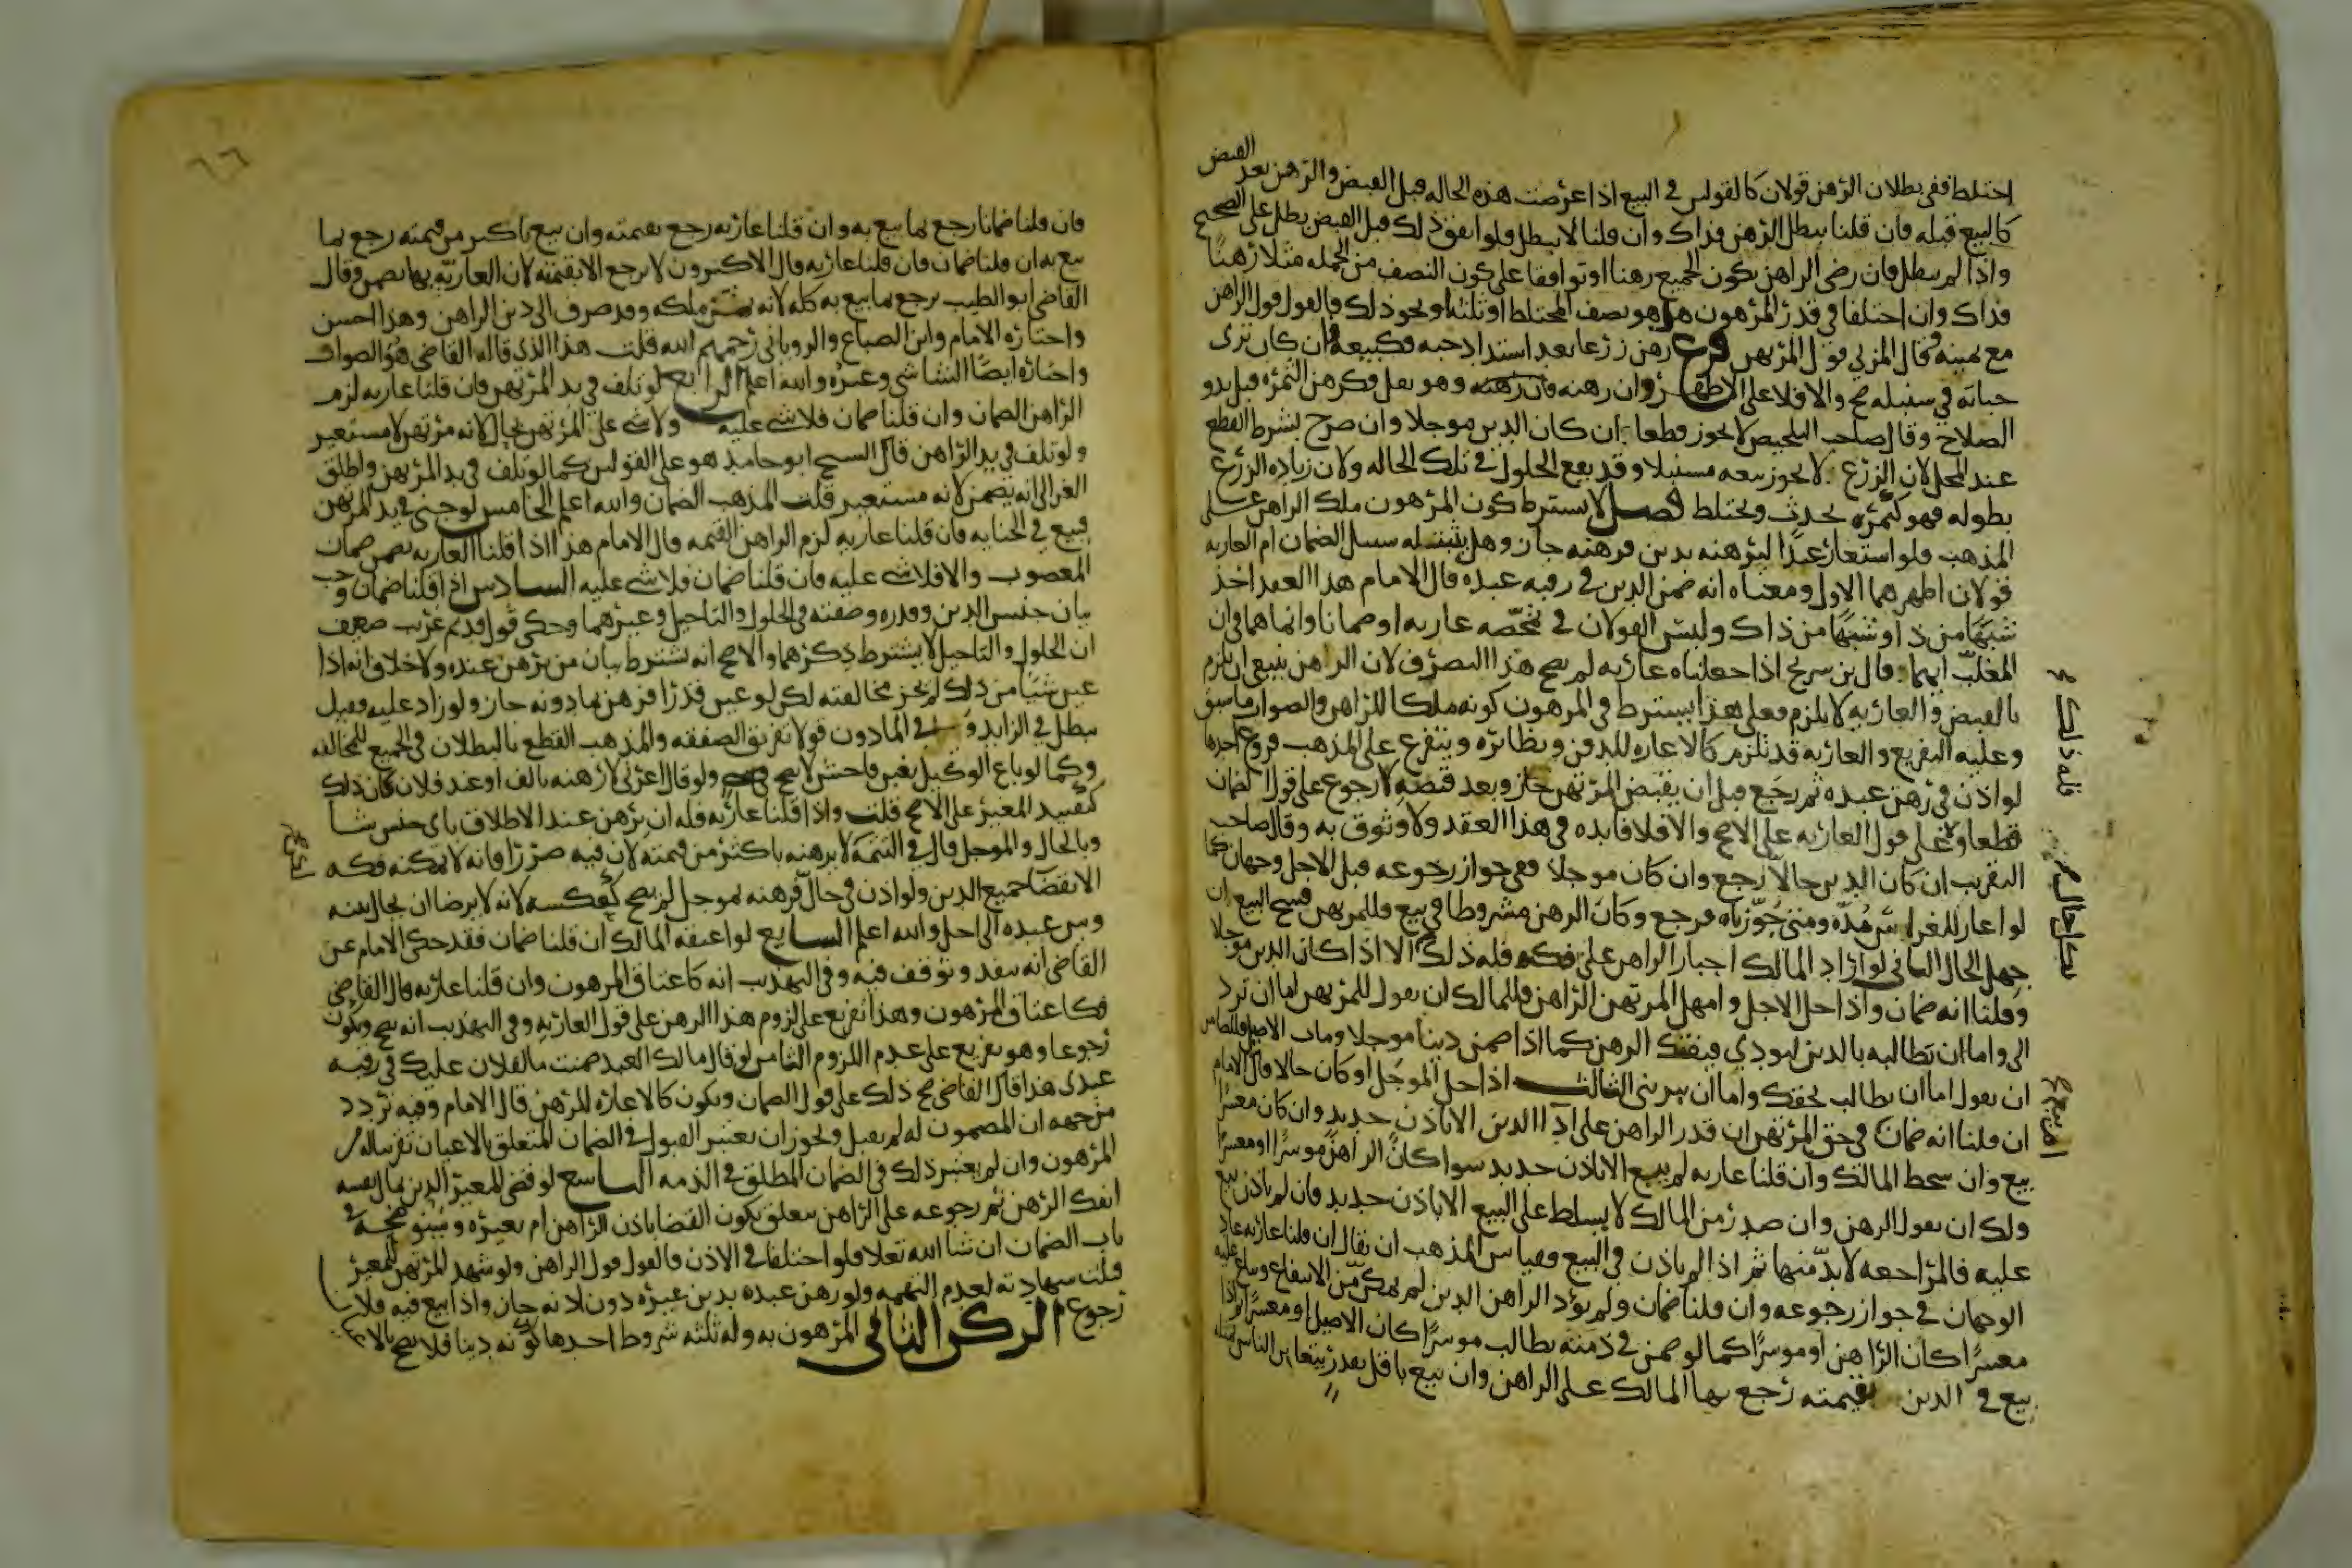 اختلط ففي بطلان الرهن قولان كالقولين في البيع اذا عرضت هذه الحاله قبل القبض والرهن بعد القبض
كالبيع قبله فان قلنا يبطل الرهن فذاك وان قلنا لا يبطل فلو اتفق ذلك قبل القبض بطل على الصحيح
واذا لم يبطل فان رضى الراهن بكون الجميع رهنا او توافقا على كون النصف من الجمله مثلا رهنا
فذاك وان اختلفا في قدر المرهون هل هو نصف المختلط او ثلثه او نحو ذلك فالقول قول الراهن
مع يمينه وقال المزني قول المرتهن فرع رهن زرعا بعد اشتداد حبه فكبيعه فان كان ترى
حباته في سنبله صح والا فلا على الاظهر وان رهنه وهو بقل فكرهن الثمره قبل بدو
الصلاح وقال صاحب التلخيص لا يجوز قطعا ان كان الدين موجلا وان صرح بشرط القطع
عند المحل لان الزرع لا يجوز بيعه مسنبلا وقد يقع الحلول في تلك الحاله ولان زياده الزرع
بطوله فهو كثمره تحدث وتختلط فصل لا يشترط كون المرهون ملك الراهن على
المذهب فلو استعار عبدا ليرهنه بدين فرهنه جاز وهل سبيله سبيل الضمان ام العاريه
قولان اظهرهما الاول ومعناه انه ضمن الدين في رقبه عبده قال الامام هذا العقد اخذ
شبها من ذا وشبها من ذاك وليس القولان في تمحضه عاريه او ضمانا وانما هما في ان
المغلب ايهما وقال بن سريج اذا جعلناه عاريه لم يصح هذا التصرف لان الراهن ينبغي ان يلزم
بالقبض والعاريه لا تلزم فعلى هذا يشترط في المرهون كونه ملكا للراهن والصواب ما سبق
وعليه التفريع والعاريه قد تلزم كالاعاره للدفن ونظائره ويتفرع على المذهب فروع احدها
لو اذن في رهن عبده ثم رجع قبل ان يقبض المرتهن جاز وبعد قبضه لا رجوع على قول الضمان
قطعا ولا على قول العاريه على الاصح والا فلا فايده في هذا العقد ولا وثوق به وقال صاحب
التقريب ان كان الدين حالا رجع وان كان موجلا ففي جواز رجوعه قبل الاجل وجهان كما
لو اعار للغراس مده ومتى جوزناه فرجع وكان الرهن مشروطا في بيع فللمرتهن فسخ البيع ان
جهل الحال الثاني لو اراد المالك اجبار الراهن على فكه فله ذلك الا اذا كان الدين موجلا
وقلنا انه ضمان واذا حل الاجل وامهل المرتهن الراهن فللمالك ان يقول للمرتهن اما ان ترد
الى واما ان تطالبه بالدين ليودي فينفك الرهن كما اذا ضمن دينا موجلا ومات الاصيل فللضامن
ان يقول اما ان تطالب بحقك واما ان تبرئني الثالث اذا حل الموجل او كان حالا قال الامام
ان قلنا انه ضمان في حق المرتهن ان قدر الراهن على ادا الدين الا باذن جديد وان كان معسرا
بيع وان سخط المالك وان قلنا عاريه لم يبع الا باذن جديد سوا كان الراهن موسرا او معسرا
ولك ان تقول الرهن وان صدر من المالك لا يسلط على البيع الا باذن جديد فان لم ياذن بيع
عليه فالمراجعه لا بد منها ثم اذا لم ياذن في البيع فقياس المذهب ان يقال ان قلنا عاريه عاد
الوجهان في جواز رجوعه وان قلنا ضمان ولم يؤد الراهن الدين لم يمكن من الامتناع ويباع عليه
معسرا كان الراهن او موسرا كما لو ضمن في ذمته يطالب موسرا كان الاصيل او معسرا
بيع في الدين بقيمته رجع بها المالك على الراهن وان بيع باقل بقدر يتغابن الناس بمثله
٦٦
فان قلنا ضمانا رجع بما بيع به وان قلنا عاريه رجع بقيمته وان بيع باكثر من قيمته رجع بما
بيع به ان قلنا ضمان فان قلنا عاريه قال الاكثرون لا يرجع الا بقيمته لان العاريه بها تضمن وقال
القاضي ابو الطيب يرجع بما بيع به كله لانه ثمن ملكه وقد صرف الى دين الراهن وهذا احسن
واختاره الامام وابن الصباغ والروياني رحمهم الله قلت هذا الذي قاله القاضي هو الصواب
واختاره ايضا الشاشي وغيره والله اعلم الرابع لو تلف في يد المرتهن فان قلنا عاريه لزم
الراهن الضمان وان قلنا ضمان فلا شي عليه ولا شي على المرتهن بحال لانه مرتهن لا مستعير
ولو تلف في يد الراهن قال الشيخ ابو حامد هو على القولين كما لو تلف في يد المرتهن واطلق
الغزالي انه يضمن لانه مستعير قلت المذهب الضمان والله اعلم الخامس لو جنى في يد المرتهن
فبيع في الجنايه فان قلنا عاريه لزم الراهن القيمه قال الامام هذا اذا قلنا العاريه تضمن ضمان
المغصوب والا فلا شي عليه فان قلنا ضمان فلا شي عليه السادس اذا قلنا ضمان وجب
بيان جنس الدين وقدره وصفته في الحلول والتاجيل وغيرهما وحكى قول قديم غريب ضعيف
ان الحلول والتاجيل لا يشترط ذكرهما والاصح انه يشترط بيان من يرهن عنده ولا خلاف انه اذا
عين شيا من ذلك لم يجز مخالفته لكن لو عين قدرا فرهن بما دونه جاز ولو زاد عليه فقيل
يبطل في الزايد وفي الماذون قولا تفريق الصفقه والمذهب القطع بالبطلان في الجميع للمخالفه
وكما لو باع الوكيل بغبن فاحش لا يصح في شي ولو قال اعرني لارهنه بالف او عند فلان كان ذلك
كتقييد المعير على الاصح قلت واذا قلنا عاريه فله ان يرهن عند الاطلاق باي جنس شا
وبالحال والموجل قال في التتمه لا يرهنه باكثر من قيمته لان فيه ضررا فانه لا يمكنه فكه
الا بقضا جميع الدين ولو اذن في حال فرهنه بموجل لم يصح كعكسه لانه لا يرضا ان يحال بينه
وبين عبده الى اجل والله اعلم السابع لو اعتقه المالك ان قلنا ضمان فقد حكى الامام عن
القاضي انه ينفد وتوقف فيه وفي التهذيب انه كاعتاق المرهون وان قلنا عاريه قال القاضي
فكاعتاق المرهون وهذا تفريع على لزوم هذا الرهن على قول العاريه وفي التهذيب انه يصح ويكون
رجوعا وهو تفريع على عدم اللزوم الثامن لو قال مالك العبد ضمنت مالفلان عليك في رقبه
عبدي هذا قال القاضي صح ذلك على قول الضمان ويكون كالاعاره للرهن قال الامام وفيه تردد
من جهه ان المضمون له لم يقبل ويجوز ان يعتبر القبول في الضمان المتعلق بالاعيان تقريبا له
المرهون وان لم يعتبر ذلك في الضمان المطلق في الذمه التاسع لو قضى المعير الدين بمال نفسه
انفك الرهن ثم رجوعه على الراهن يتعلق بكون القضا باذن الراهن ام بغيره وسنوضحه في
باب الضمان ان شا الله تعلا فلو اختلفا في الاذن فالقول قول الراهن ولو شهد المرتهن للمعير
قبلت شهادته لعدم التهمه ولو رهن عبده بدين غيره دون اذنه جاز واذا بيع فيه فلا
رجوع الركن الثاني المرهون به وله ثلثه شروط احدها كونه دينا فلا يصح بالاعيان